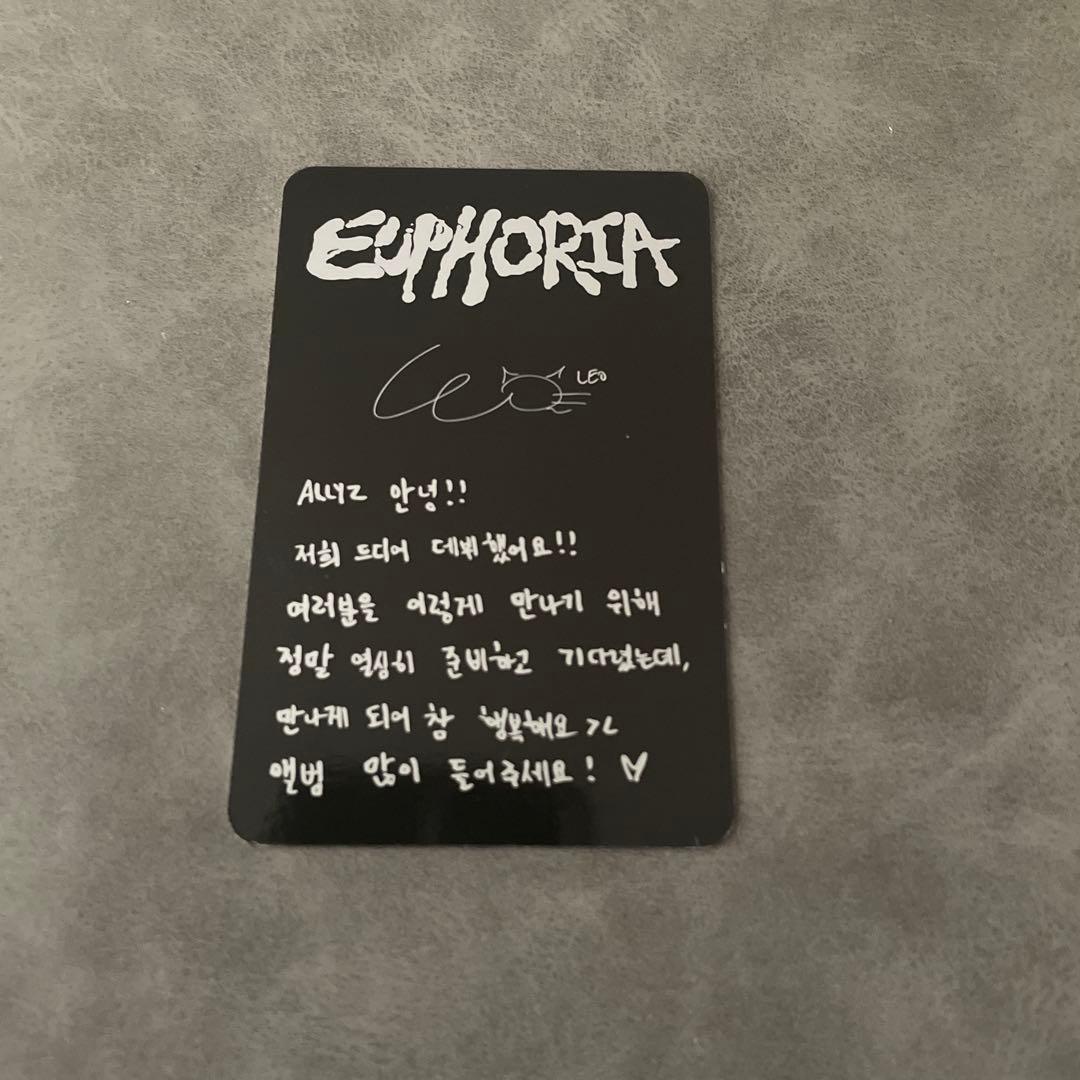 EUPHORIA
LEO
ALLYZ 안녕!!
저희 드디어 데뷔했어요!!
여러분을 이렇게 만나기 위해
정말 열심히 준비하고 기다렸는데,
만나게 되어 참 행복해요 ㅎㅎ
앨범 많이 들어주세요! ♡